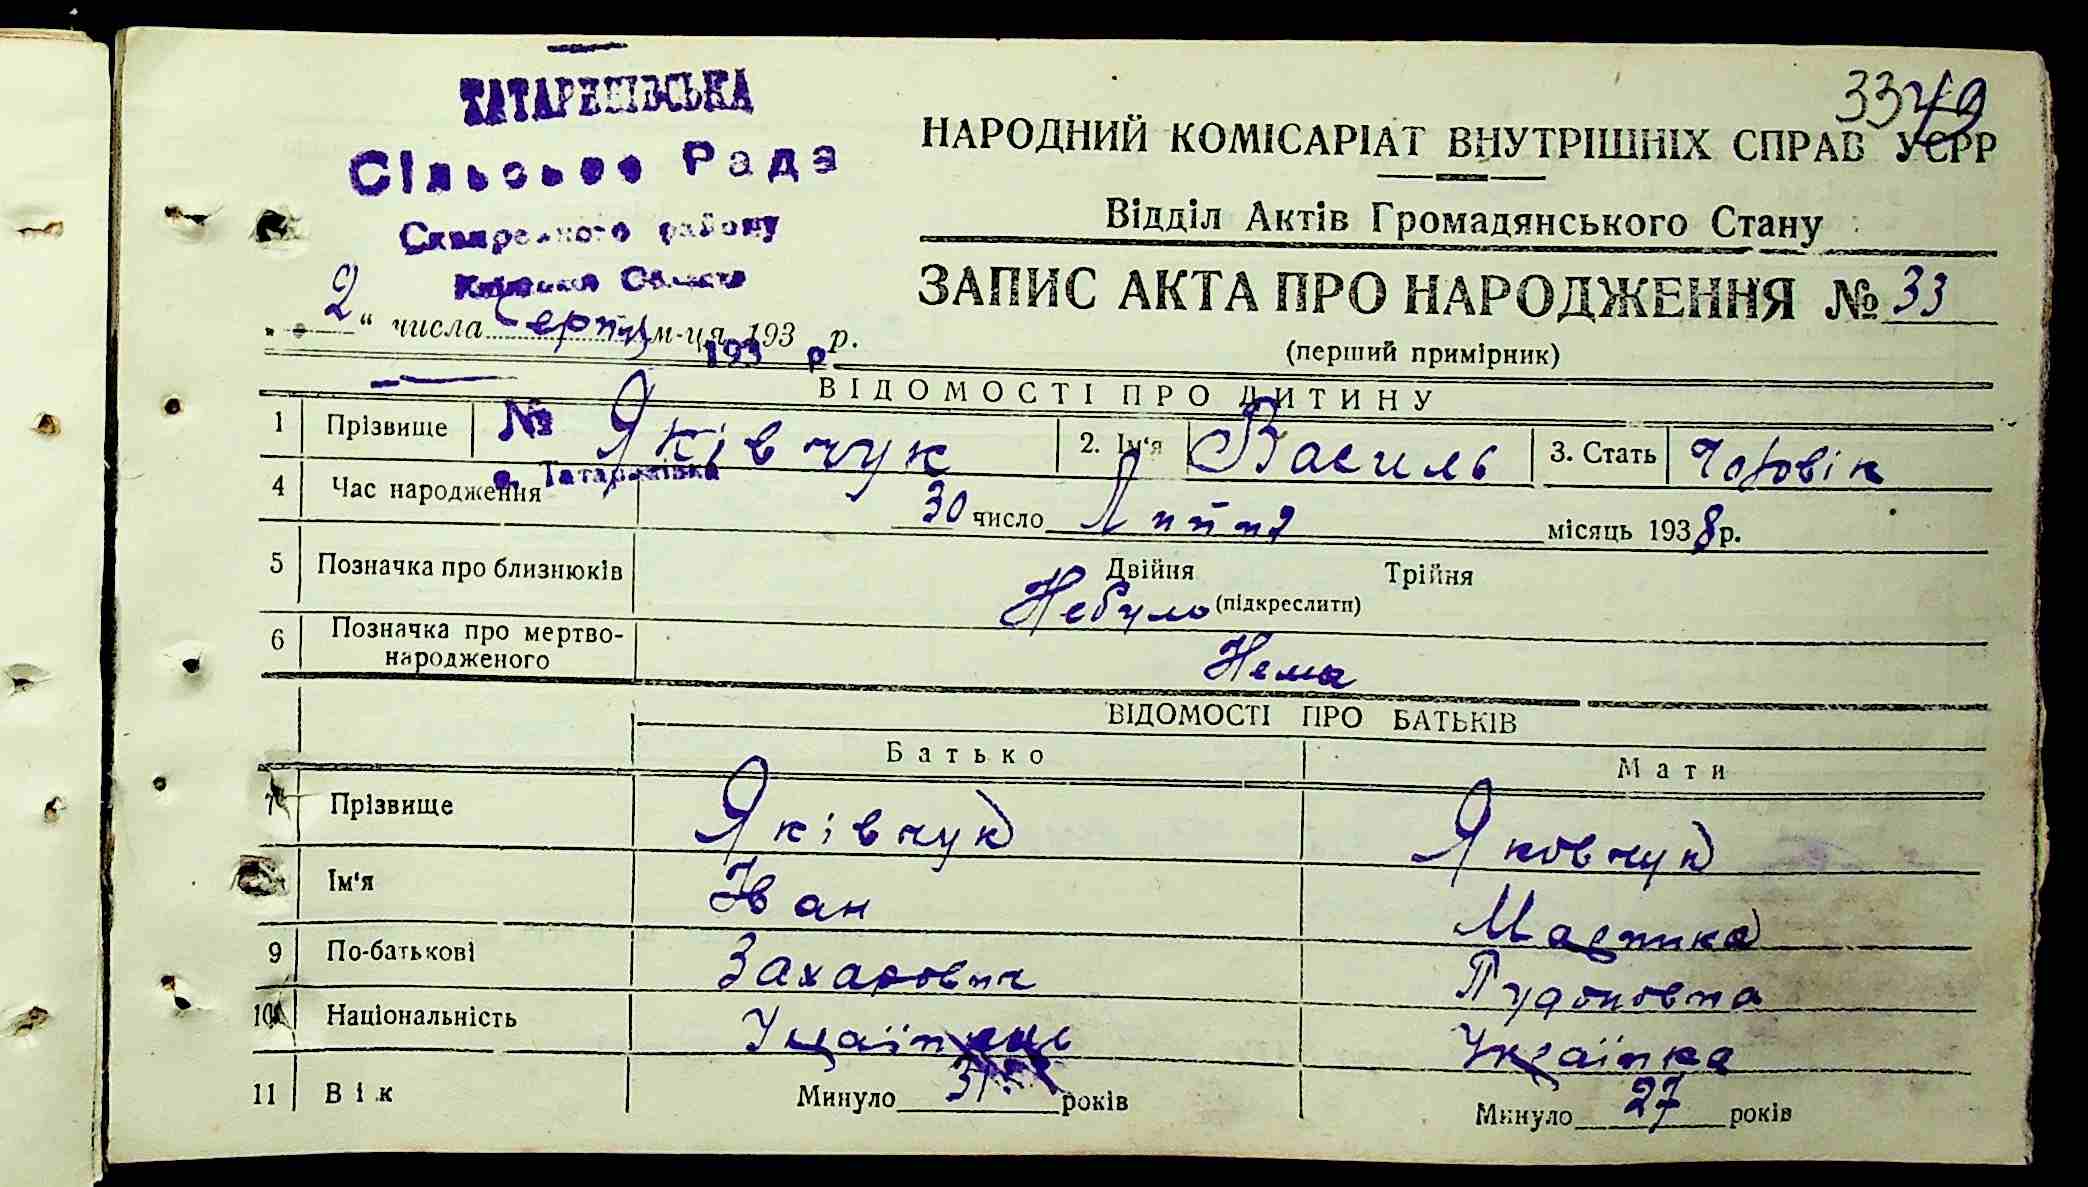 ТАТАРИНІВСЬКА
Сільська Рада
Сквирського району
Київської Області
33 79
НАРОДНИЙ КОМІСАРІАТ ВНУТРІШНІХ СПРАВ УСРР
Відділ Актів Громадянського Стану
ЗАПИС АКТА ПРО НАРОДЖЕННЯ № 33
(перший примірник)
2 “ числа Серпня м-ця 193 р.
193 р
ВІДОМОСТІ ПРО ДИТИНУ
№
1 Прізвище Яківчук 2. Ім'я Василь 3. Стать Чоловік
с. Татаринівка
4 Час народження 30 число Липня місяць 1938 р.
5 Позначка про близнюків Двійня Трійня
Небуло (підкреслити)
6 Позначка про мертво-
народженого Нема
ВІДОМОСТІ ПРО БАТЬКІВ
Батько Мати
7 Прізвище Яківчук Яковчук
Ім'я Іван
9 По-батькові Захарович
10 Національність Українець Українка
11 Вік Минуло років Минуло 27 років